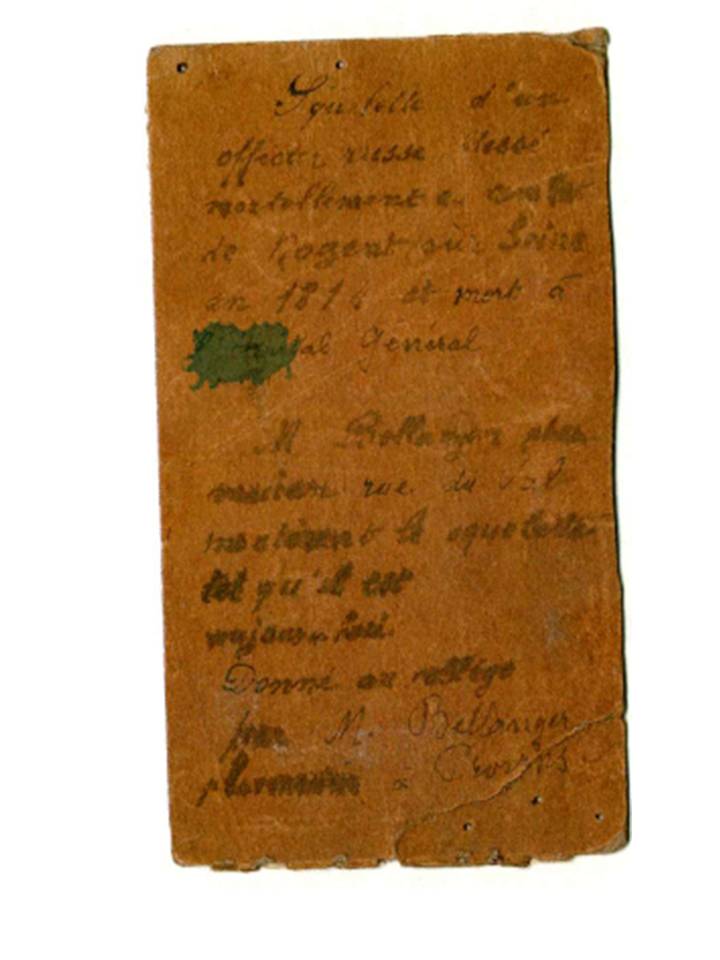 Squelette d'un
officier russe blessé
mortellement au combat
de Nogent sur Seine
en 1814 et mort à
l'Hôpital Général
M Bellanger phar
macien rue du Val
montèrent le squelette
tel qu'il est
aujourd'hui.
Donné au collège
par M. Bellanger
pharmacien à Provins